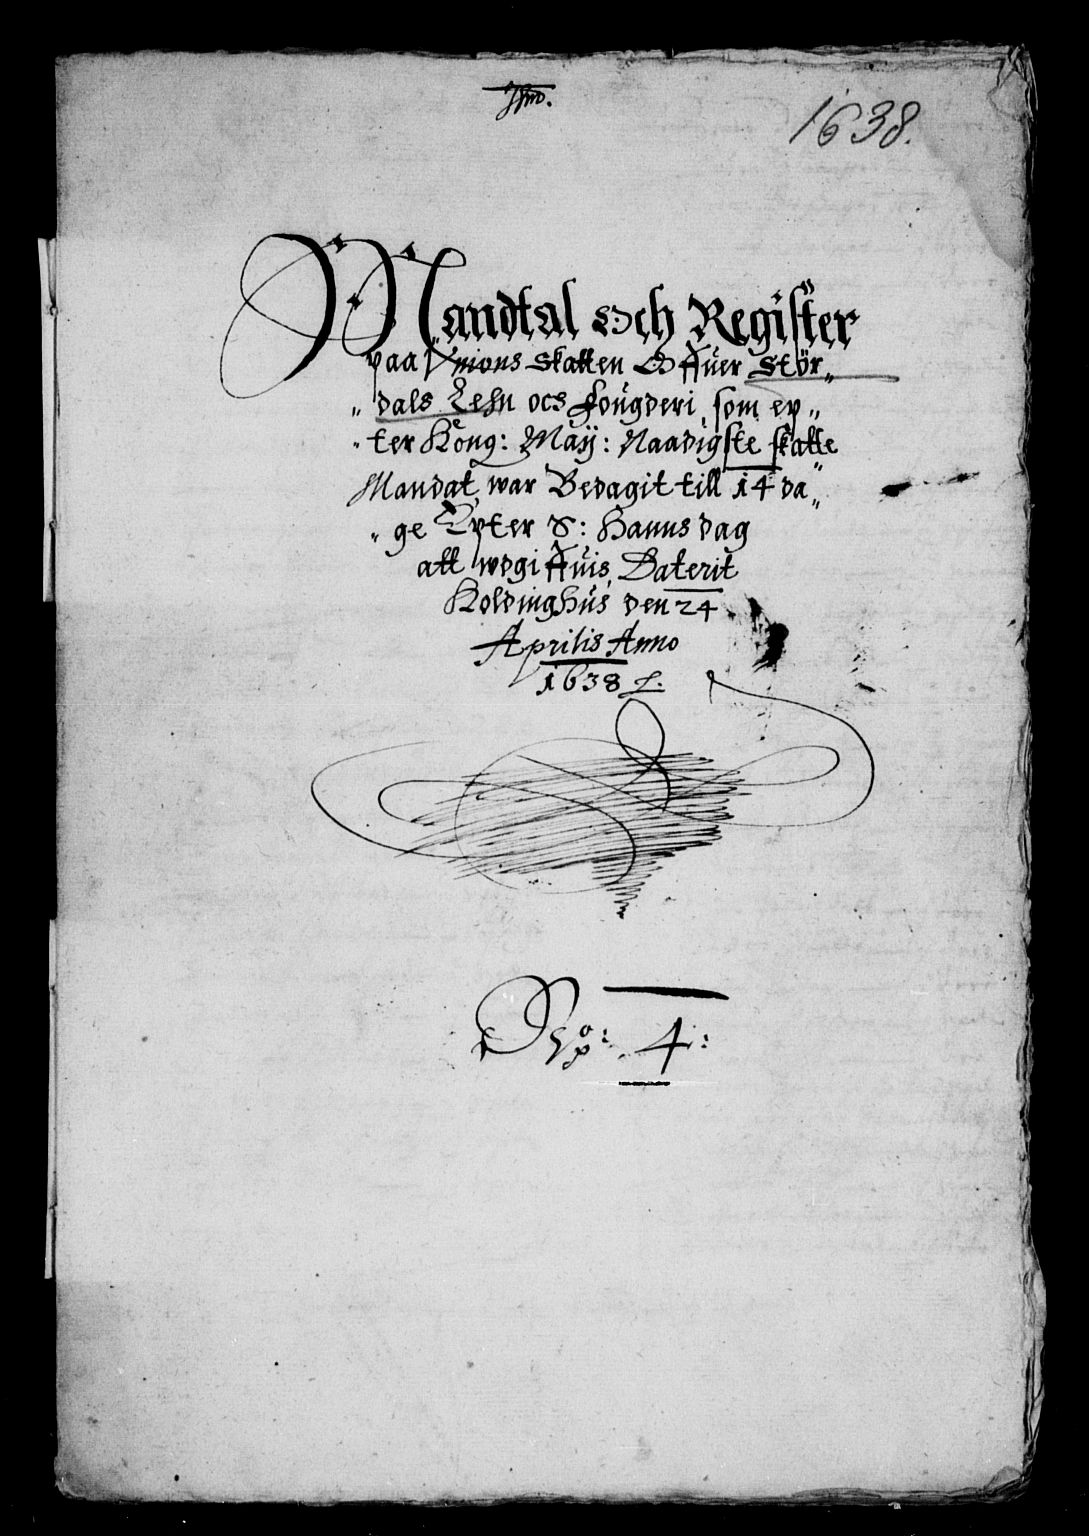 1638.
Mandtal Och Register
paa Vnions Skatten Offuer Stör„
„ dals Lehn ocs fougderi, som ep„
„ ter Kong: May: Naadigste skatte
Mandat, war Bedagit till 14 da„
„ ge Epter S: Hanns dag
att wdgiffuis, Daterit
Koldinghus den 24
Aprilis Anno
1638
No: 4: